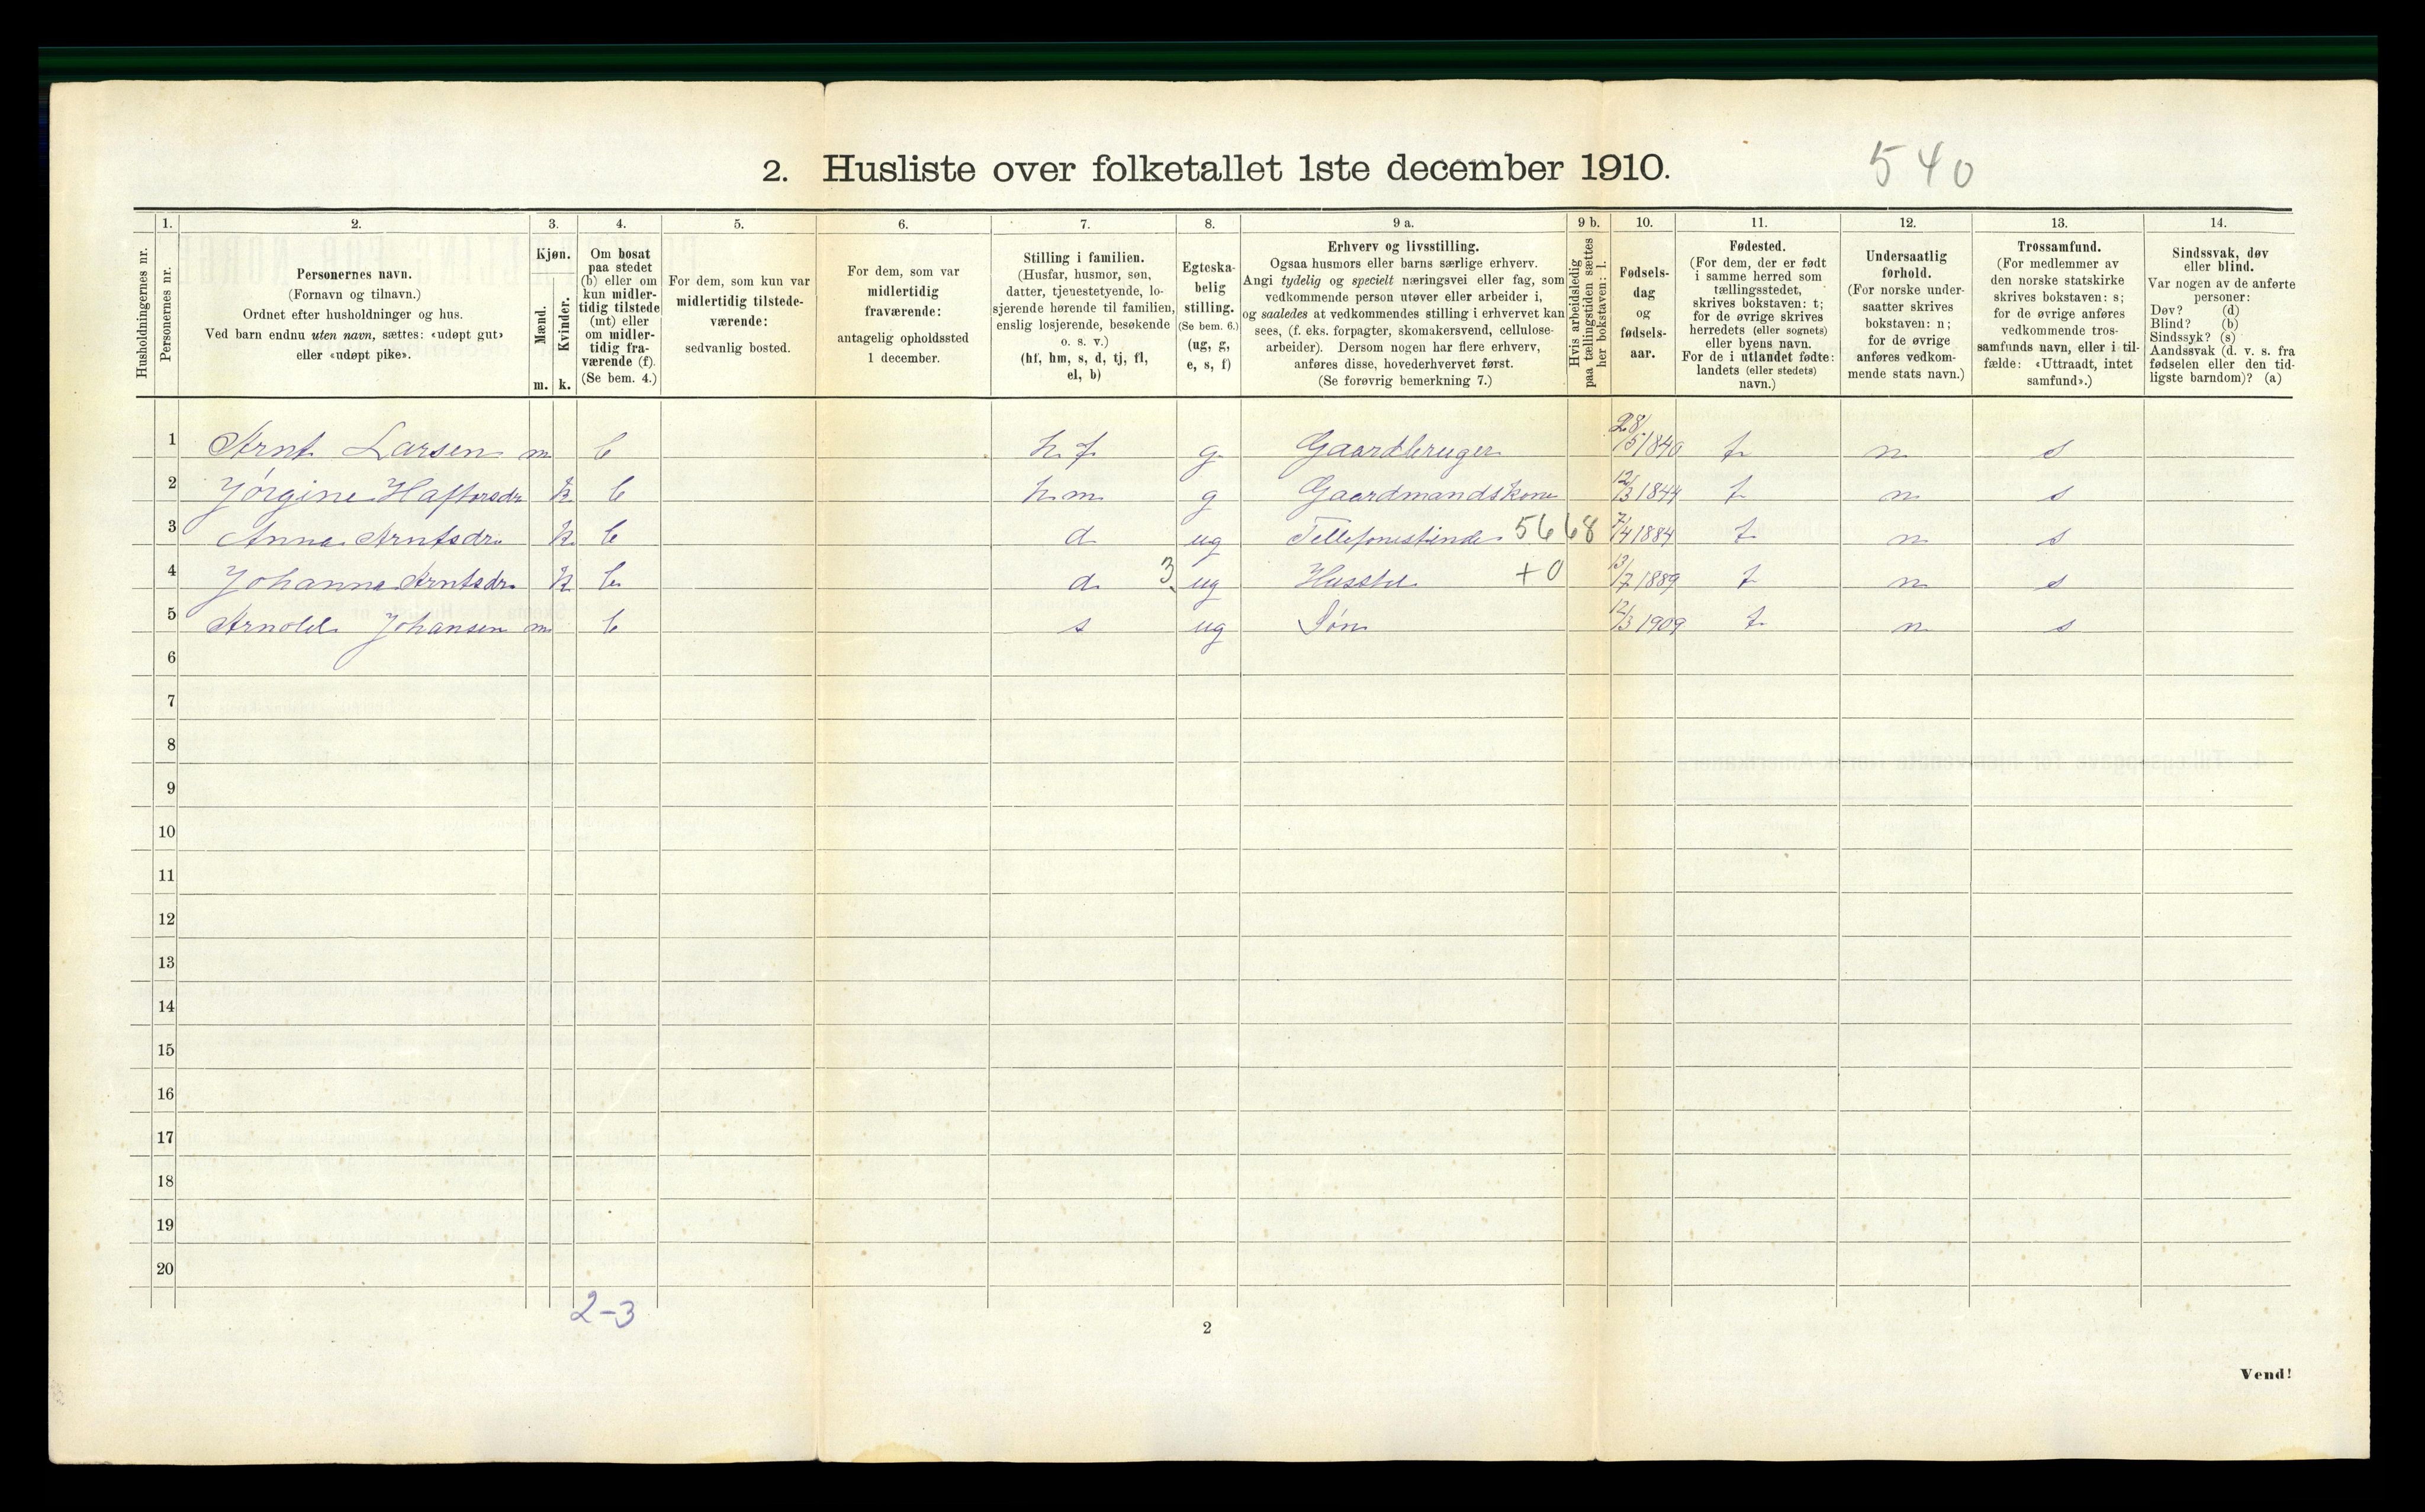 2. Husliste over folketallet 1ste december 1910.
540
Husholdningernes nr.
1.
Personernes nr.
2.
Personernes navn.
(Fornavn og tilnavn.)
Ordnet efter husholdninger og hus.
Ved barn endnu uten navn, sættes: «udøpt gut»
eller «udøpt pike».
3.
Kjøn.
Mænd.
Kvinder.
m. k.
4.
Om bosat
paa stedet
(b) eller om
kun midler-
tidig tilstede
(mt) eller
om midler-
tidig fra-
værende (f).
(Se bem. 4.)
5.
For dem, som kun var
midlertidig tilstede-
værende:
sedvanlig bosted.
6.
For dem, som var
midlertidig
fraværende:
antagelig opholdssted
1 december.
7.
Stilling i familien.
(Husfar, husmor, søn,
datter, tjenestetyende, lo-
sjerende hørende til familien,
enslig losjerende, besøkende
o. s. v.)
(hf, hm, s, d, tj, fl,
el, b)
8.
Egteska-
belig
stilling.
(Se bem. 6.)
(ug, g,
e, s, f)
9 a.
Erhverv og livsstilling.
Ogsaa husmors eller barns særlige erhverv.
Angi tydelig og specielt næringsvei eller fag, som
vedkommende person utøver eller arbeider i,
og saaledes at vedkommendes stilling i erhvervet kan
sees, (f. eks. forpagter, skomakersvend, cellulose-
arbeider). Dersom nogen har flere erhverv,
anføres disse, hovederhvervet først.
(Se forøvrig bemerkning 7.)
9 b.
Hvis arbeidsledig
paa tællingstiden sættes
her bokstaven: l.
10.
Fødsels-
dag
og
fødsels-
aar.
11.
Fødested.
(For dem, der er født
i samme herred som
tællingsstedet,
skrives bokstaven: t;
for de øvrige skrives
herredets (eller sognets)
eller byens navn.
For de i utlandet fødte:
landets (eller stedets)
navn.)
12.
Undersaatlig
forhold.
(For norske under-
saatter skrives
bokstaven: n;
for de øvrige
anføres vedkom-
mende stats navn.)
13.
Trossamfund.
(For medlemmer av
den norske statskirke
skrives bokstaven: s;
for de øvrige anføres
vedkommende tros-
samfunds navn, eller i til-
fælde: «Uttraadt, intet
samfund».)
14.
Sindssvak, døv
eller blind.
Var nogen av de anførte
personer:
Døv? (d)
Blind? (b)
Sindssyk? (s)
Aandssvak (d. v. s. fra
fødselen eller den tid-
ligste barndom)? (a)
1 Arnt Larsen m b hf g Gaardbruger 28/5 1840 t n s
2 Jørgine Haftorsdr k b hm g Gaardmandskone 12/3 1844 t n s
3 Anna Arntsdr. k b d ug Tellefonistinde 5668 7/4 1884 t n s
4 Johanna Arntsdr. k b d 3 ug Husstel +0 13/7 1889 t n s
5 Arnold Johansen m b s ug Søn 12/3 1909 t n s
6
7
8
9
10
11
12
13
14
15
16
17
18
19
20
2-3
2
Vend!